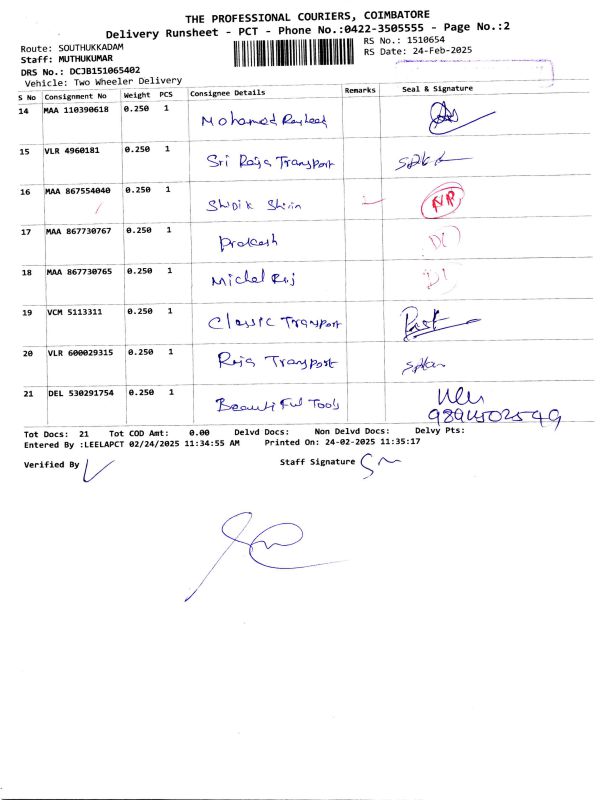 THE PROFESSIONAL COURIERS, COIMBATORE
Delivery Runsheet - PCT - Phone No.:0422-3505555 - Page No.:2
Route: SOUTHUKKADAM
RS No.: 1510654
Staff: MUTHUKUMAR
RS Date: 24-Feb-2025
DRS No.: DCJB151065402
Vehicle: Two Wheeler Delivery
S No Consignment No Weight PCS Consignee Details Remarks Seal & Signature
14 MAA 110390618 0.250 1 Mohamed Rasheed
15 VLR 4960181 0.250 1 Sri Raja Transport
16 MAA 867554040 0.250 1 Shirin NR
17 MAA 867730767 0.250 1 Prakash DL
18 MAA 867730765 0.250 1 Michel Raj DL
19 VCM 5113311 0.250 1 Classic Transport
20 VLR 600029315 0.250 1 Raja Transport
21 DEL 530291754 0.250 1 Beautiful Tools
9894502549
Tot Docs: 21 Tot COD Amt: 0.00 Delvd Docs: Non Delvd Docs: Delvy Pts:
Entered By :LEELAPCT 02/24/2025 11:34:55 AM Printed On: 24-02-2025 11:35:17
Verified By Staff Signature